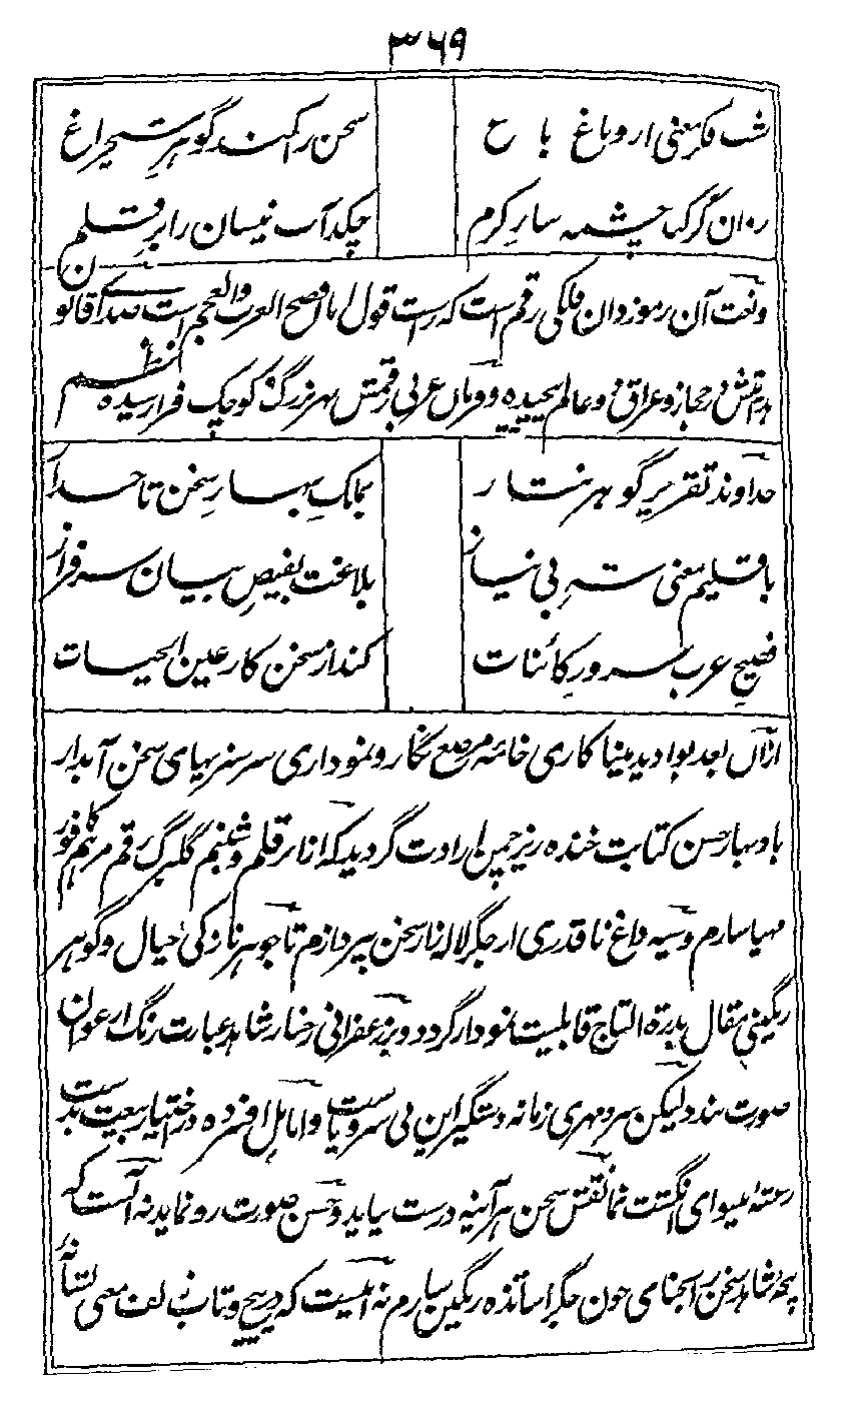 ۳۶۹
شب فکر معنی ازو باغ باغ
سخن را کند گوهر شبچراغ
روان گر کند چشمه سار کرم
چکد آب نیسان را بر قلم
و نعت آن رموزدان فلکی رقم است که راست قول انا افصح العرب والعجم است صدای قانون
در حجاز و عراق و عالم پیچیده و فرمان عربی رقمش بهر بزرگ و کوچک فرا رسیده نظم
خداوند تقریر گوهر نثار
بملک بهار سخن تاجدار
باقلیم معنی شه بی نیاز
بلاغت بفیض بیان سرفراز
فصیح عرب سرور کائنات
کند از سخن کار عین الحیات
ازان بعد بوادید مینا کاری خامهٔ مرصع نگار و نموداری سرسبزیهای سخن آبدار
باد بهار حسن کتابت خنده ریز چمن ارادت گردید که انار قلم و شبنم گلبرگ رقم مرهم کافور
مهیا سازم و سیه داغ ناقدری از جگر لاله زار سخن بپردازم تا جوهر نازکی خیال و گوهر
رنگینی مقال بدرة التاج قابلیت نمودار گردد و بر زعفرانی رخسار شاهد عبارت رنگ ارغوان
صورت بندد لیکن سرد مهری زمانه دستگیر این بی سر و پاست و انامل افسرده در اختیار بیعت بدست
رعشه میوای انگشت نما نقش سخن هر آئینه درست نیاید و حسن صورت رو ننماید نه آنست که
پنجهٔ شاهد سخن را بحنای خون جگر اساتذه رنگین سازم نه اینست که در پیچ و تاب زلف معنی بشانهٔ